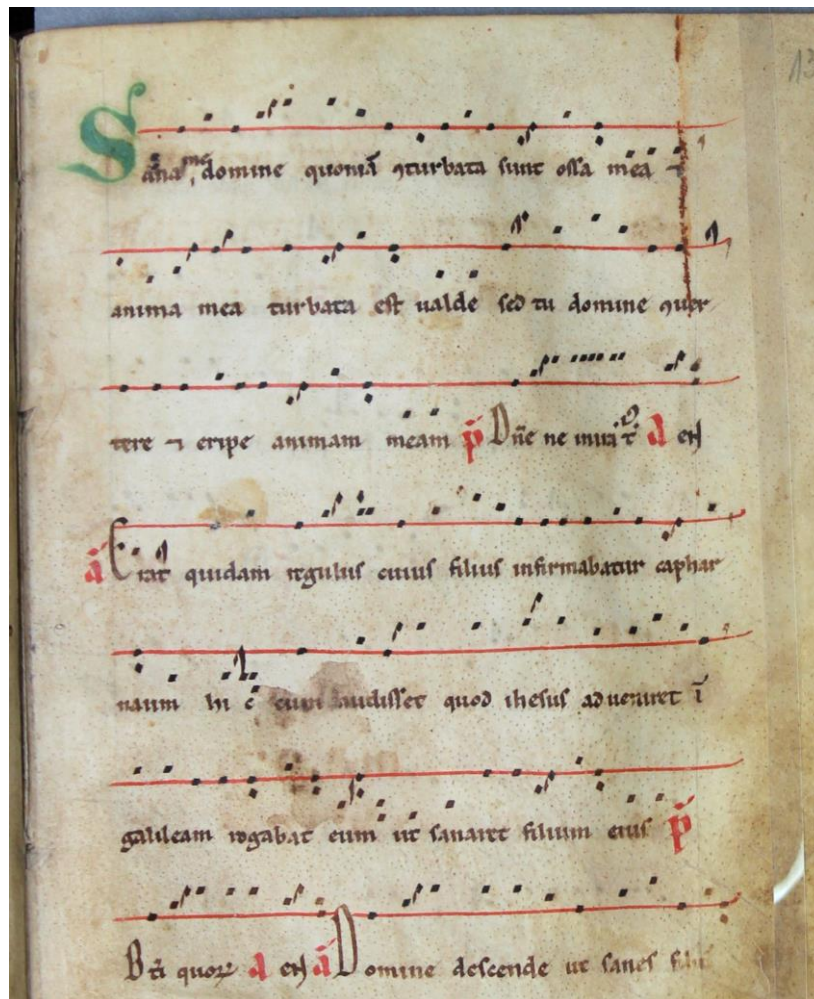 13
Sana me domine quoniā ꝯturbata sunt ossa mea ⁊
anima mea turbata est ualde sed tu domine ꝯuer
tere ⁊ eripe animam meam p̄ Dn̄e ne in ira t̄ a eu
ā Erat quidam regulus cuius filius infirmabatur caphar
naum hic cum audisset quod ihesus adueniret ī
galileam rogabat eum ut sanaret filium eius p̄
Bt̄i quoꝝ a eu ā Domine descende ut sanes